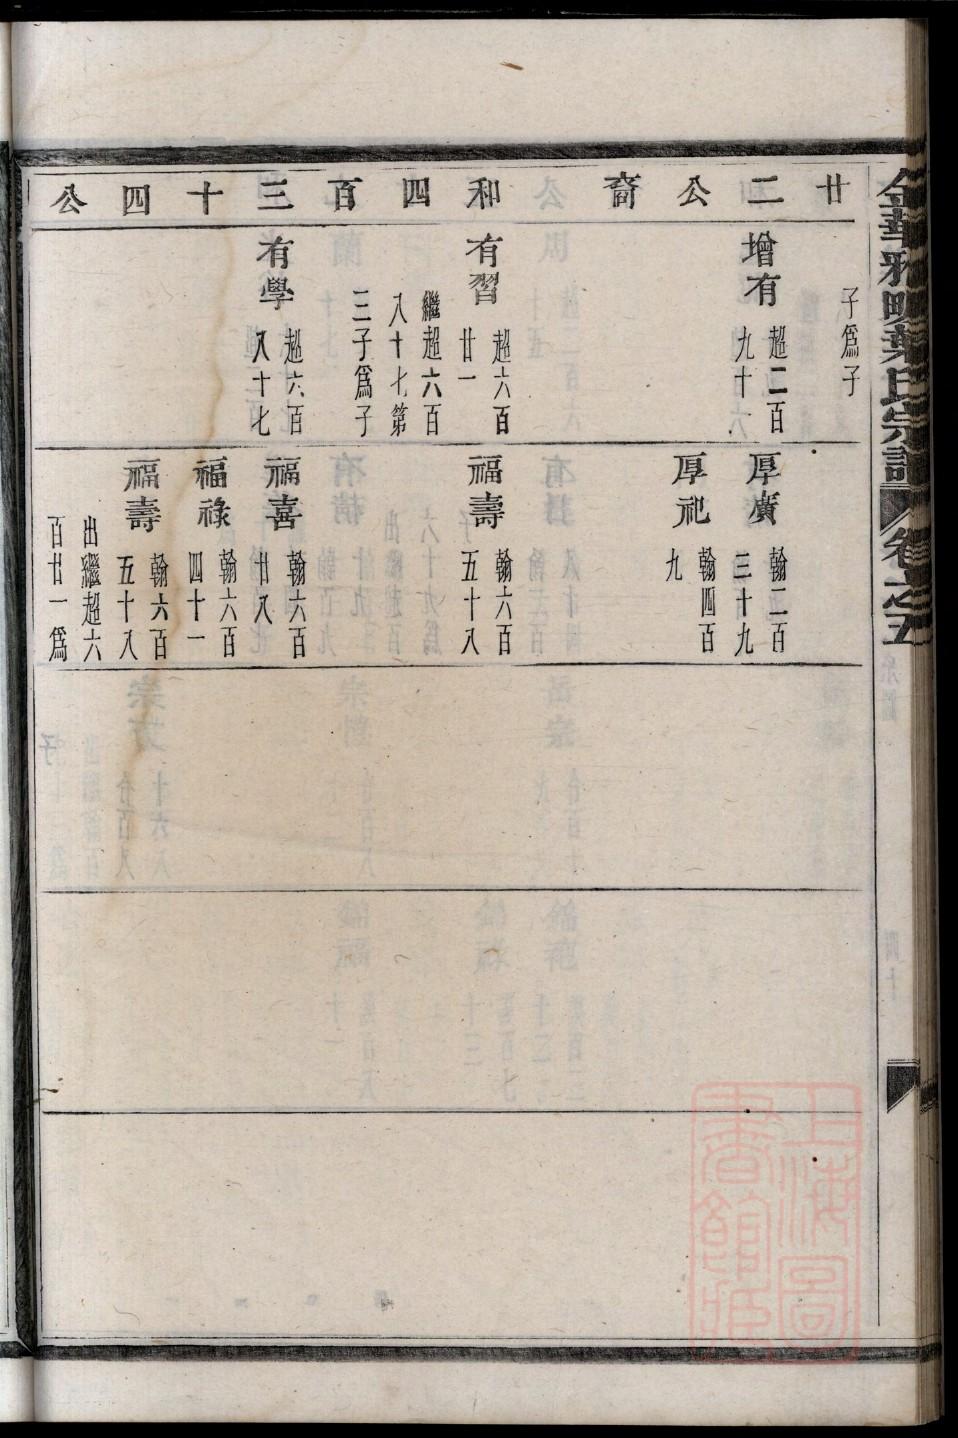 金華雅畈葉氏宗譜
卷之五
廿二公裔
和四百三十四公
子為子
增有
超二百
九十六
有習
超六百
廿一
繼超六百
八十七第
三子為子
有學
超六百
八十七
厚廣
翰二百
三十九
厚祀
翰四百
九
福壽
翰六百
五十八
福喜
翰六百
廿八
福祿
翰六百
四十一
福壽
翰六百
五十八
出繼超六
百廿一為
上海圖
書館藏